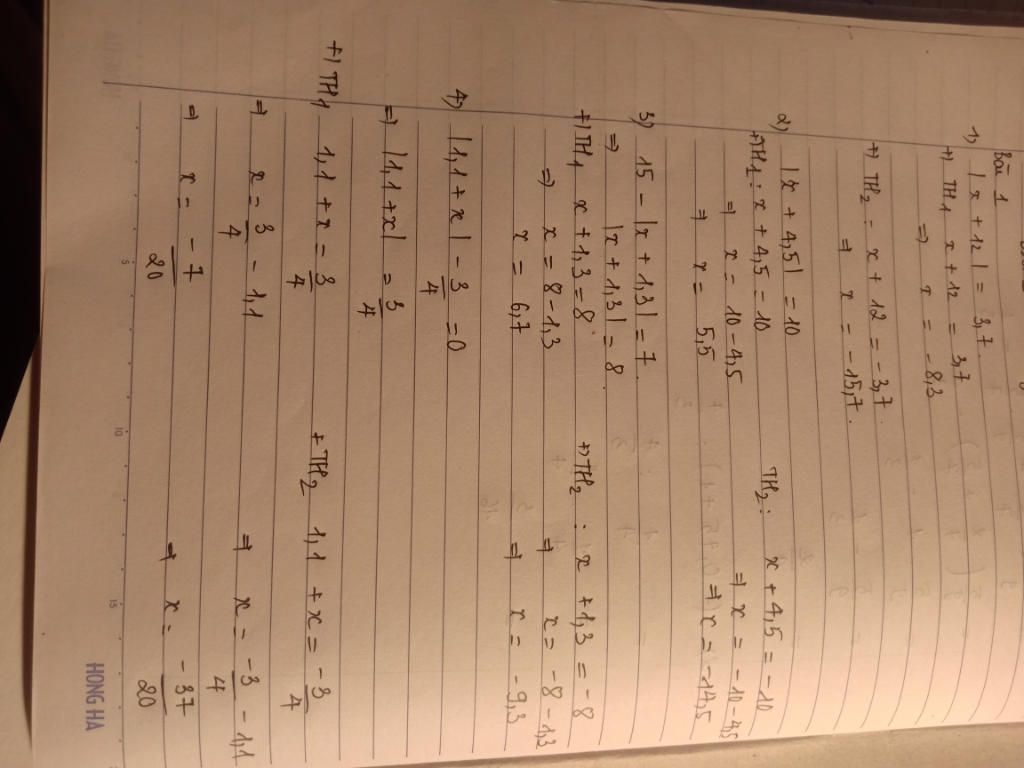 Bài 1
1) | x + 12 | = 3,7
+) TH1 x + 12 = 3,7
⇒ x = -8,3
+) TH2 = x + 12 = -3,7
⇒ x = -15,7.
2) | x + 4,5 | = 10
+) TH1 : x + 4,5 = 10 TH2 : x + 4,5 = -10
⇒ x = 10 - 4,5 ⇒ x = -10 - 4,5
⇒ x = 5,5 ⇒ x = -14,5
3) 15 - | x + 1,3 | = 7.
⇒ | x + 1,3 | = 8
+) TH1 x + 1,3 = 8 +) TH2 : x + 1,3 = -8
⇒ x = 8 - 1,3 ⇒ x = -8 - 1,3
x = 6,7 ⇒ x = -9,3
4) | 1,1 + x | - 3/4 = 0
⇒ | 1,1 + x | = 3/4
+) TH1 1,1 + x = 3/4 + TH2 1,1 + x = -3/4
⇒ x = 3/4 - 1,1 ⇒ x = -3/4 - 1,1
⇒ x = -7/20 ⇒ x = -37/20
HONG HA
5 10 15